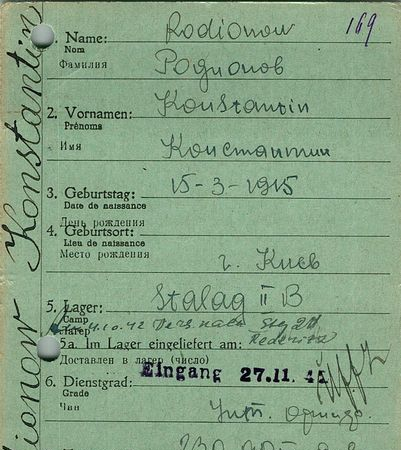 169
1. Name: Rodionow
Nom
Фамилия Родионов
2. Vornamen: Konstantin
Prénoms
Имя Константин
3. Geburtstag: 15-3-1915
Date de naissance
День рождения
4. Geburtsort:
Lieu de naissance
Место рождения г. Киев
5. Lager: Stalag II B
Camp
Лагерь 4.10.42 Vers. nach
5a. Im Lager eingeliefert am:
Доставлен в лагерь (число)
Eingang 27.11.41
6. Dienstgrad:
Grade
Чин
Konstantin